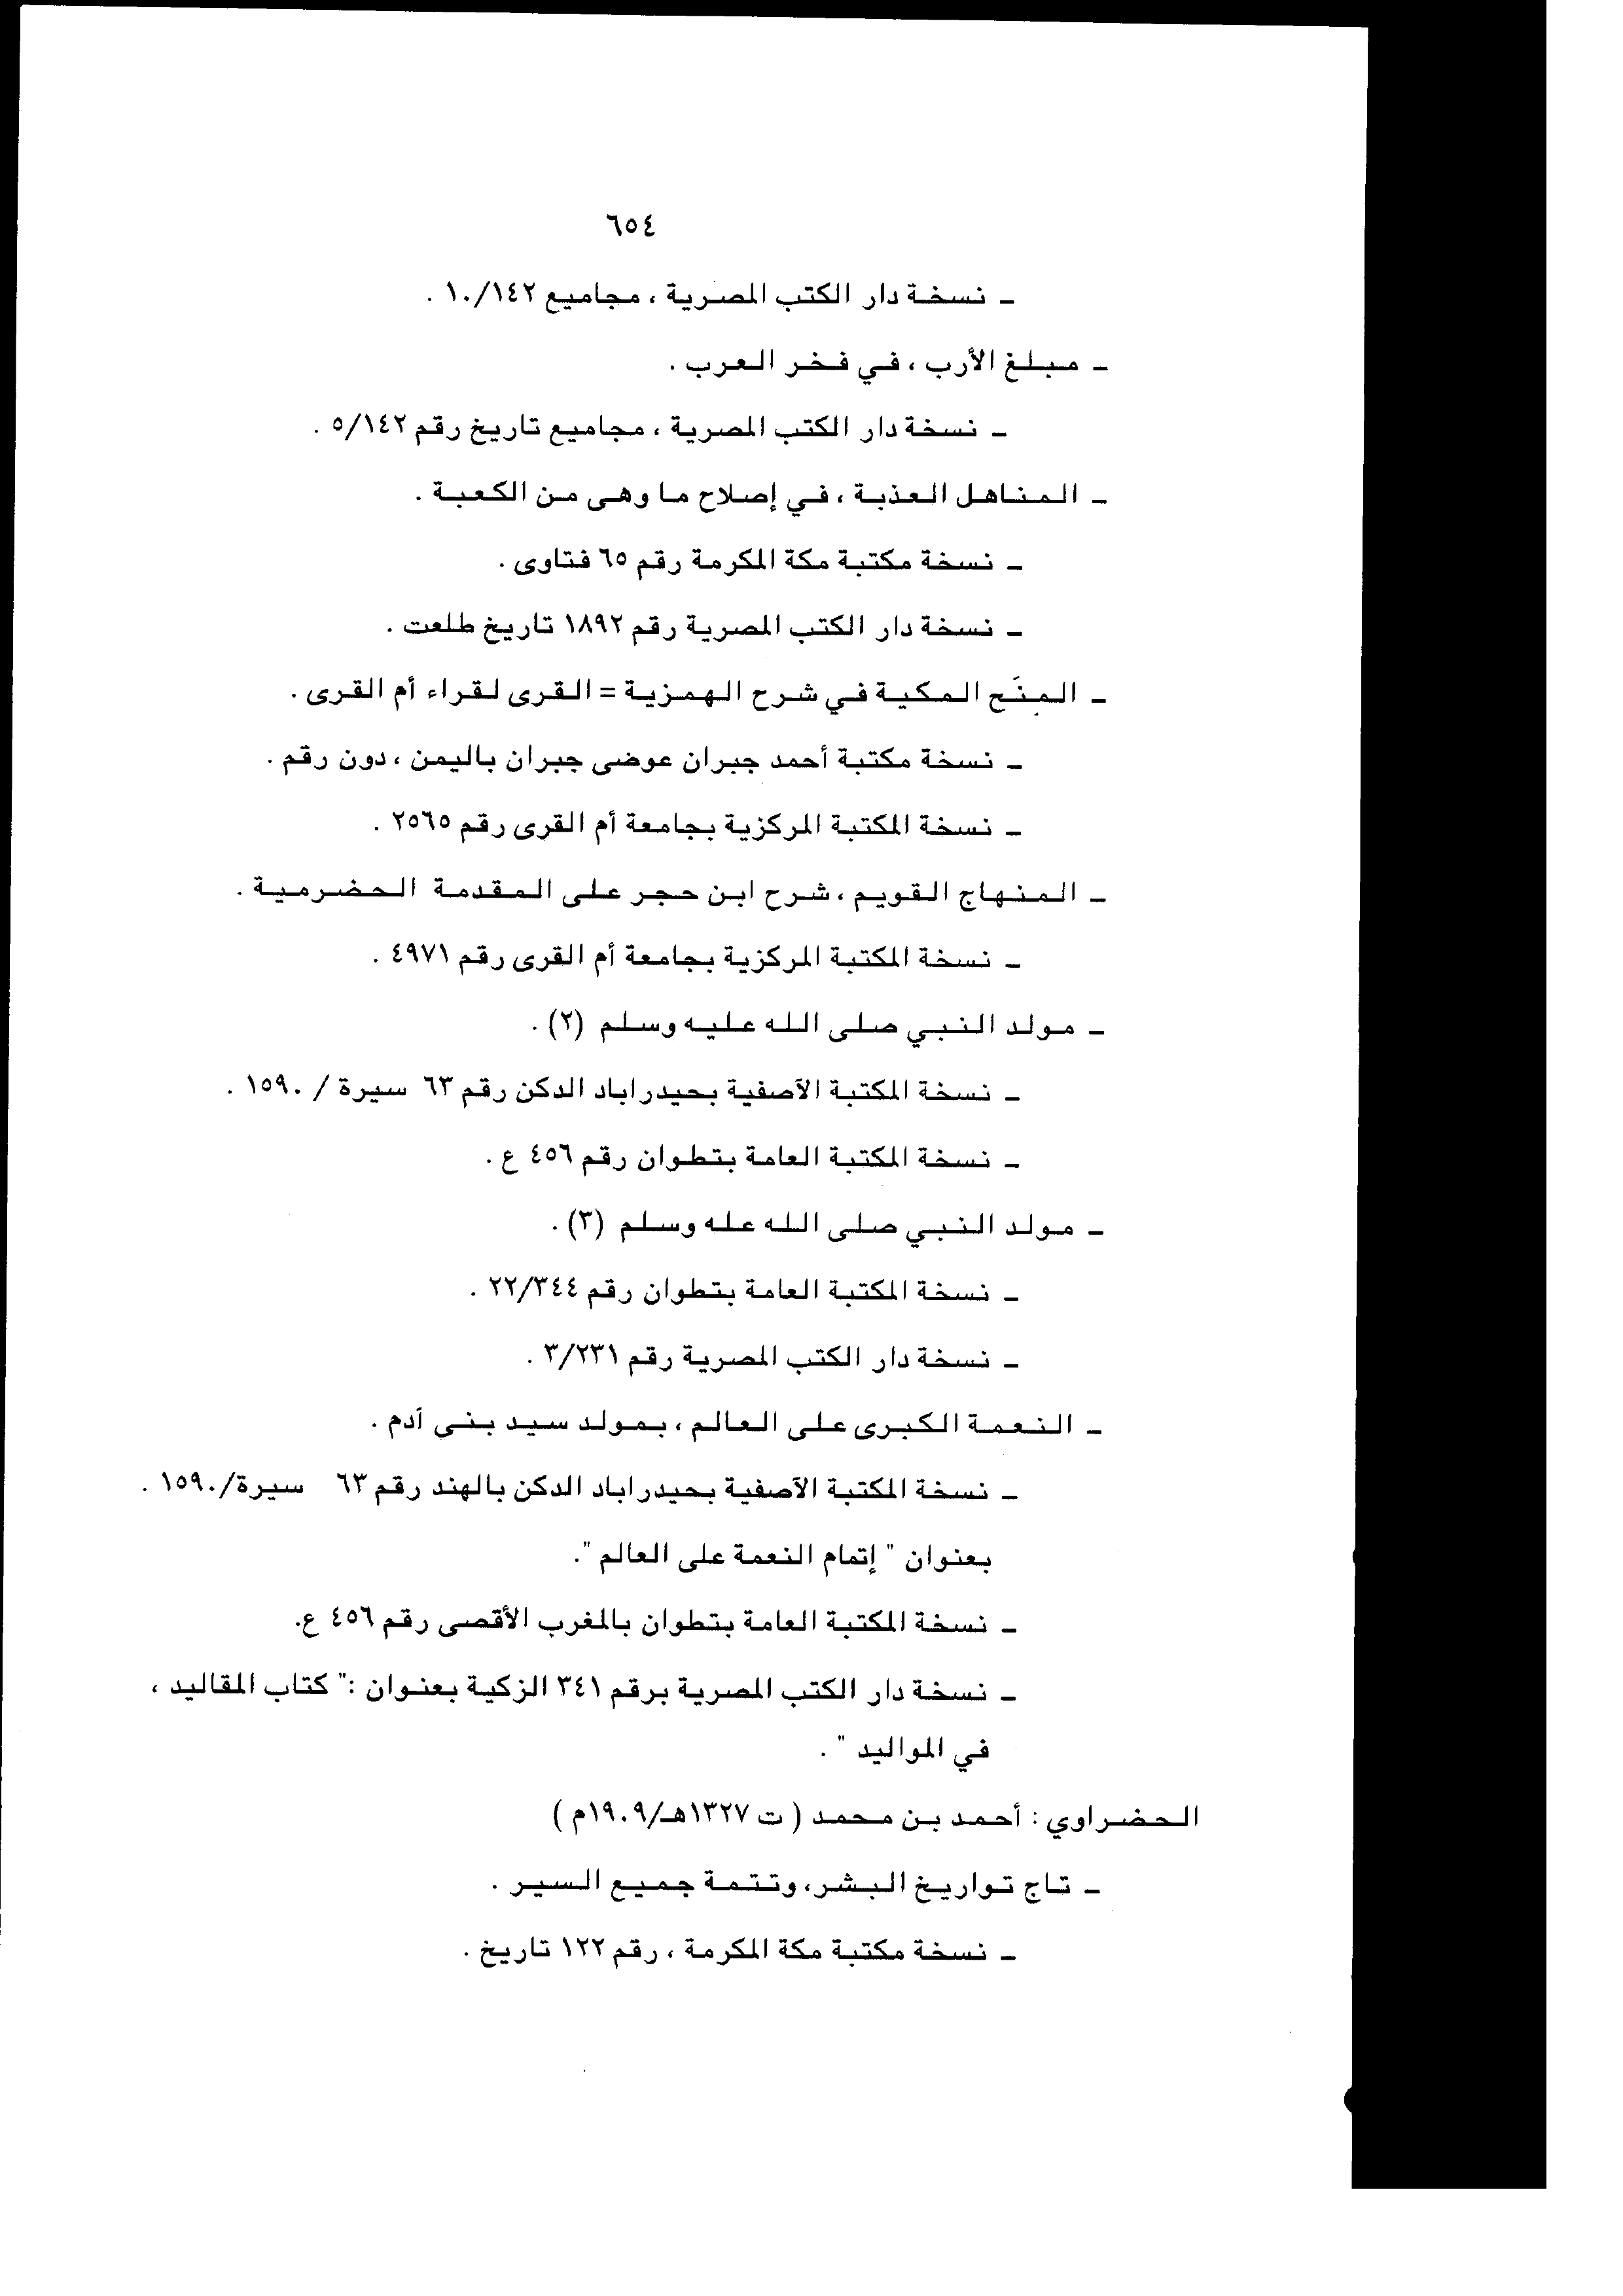 ٦٥٤
ـ نسخة دار الكتب المصرية ، مجاميع ١٠/١٤٢ .
ـ مبلغ الأرب ، في فخر العرب .
ـ نسخة دار الكتب المصرية ، مجاميع تاريخ رقم ٥/١٤٢ .
ـ المناهل العذبة ، في إصلاح ما وهى من الكعبة .
ـ نسخة مكتبة مكة المكرمة رقم ٦٥ فتاوى .
ـ نسخة دار الكتب المصرية رقم ١٨٩٢ تاريخ طلعت .
ـ المِنَح المكية في شرح الهمزية = القرى لقراء أم القرى .
ـ نسخة مكتبة أحمد جبران عوضى جبران باليمن ، دون رقم .
ـ نسخة المكتبة المركزية بجامعة أم القرى رقم ٢٥٦٥ .
ـ المنهاج القويم ، شرح ابن حجر على المقدمة الحضرمية .
ـ نسخة المكتبة المركزية بجامعة أم القرى رقم ٤٩٧١ .
ـ مولد النبي صلى الله عليه وسلم (٢) .
ـ نسخة المكتبة الآصفية بحيدراباد الدكن رقم ٦٣ سيرة / ١٥٩٠ .
ـ نسخة المكتبة العامة بتطوان رقم ٤٥٦ ع .
ـ مولد النبي صلى الله عله وسلم (٣) .
ـ نسخة المكتبة العامة بتطوان رقم ٢٢/٣٤٤ .
ـ نسخة دار الكتب المصرية رقم ٣/٢٣١ .
ـ النعمة الكبرى على العالم ، بمولد سيد بنى آدم .
ـ نسخة المكتبة الآصفية بحيدراباد الدكن بالهند رقم ٦٣ سيرة/١٥٩٠ .
بعنوان " إتمام النعمة على العالم ".
ـ نسخة المكتبة العامة بتطوان بالمغرب الأقصى رقم ٤٥٦ ع.
ـ نسخة دار الكتب المصرية برقم ٣٤١ الزكية بعنوان :" كتاب المقاليد ،
في المواليد " .
الحضراوي : أحمد بن محمد ( ت ١٣٢٧هـ/١٩٠٩م )
ـ تاج تواريخ البشر، وتتمة جميع السير .
ـ نسخة مكتبة مكة المكرمة ، رقم ١٢٢ تاريخ .